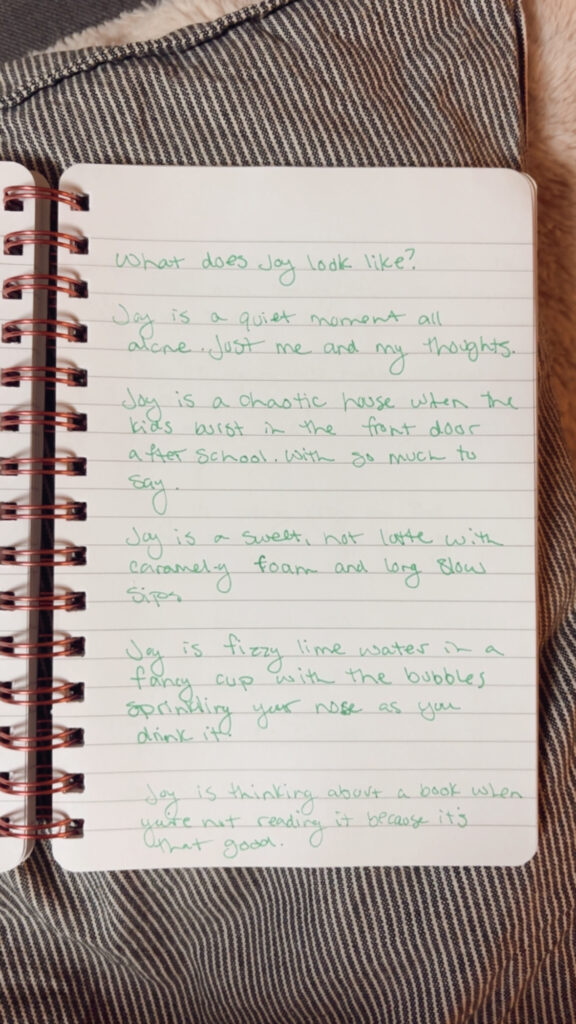 What does Joy look like?
Joy is a quiet moment all
alone. Just me and my thoughts.
Joy is a chaotic house when the
kids burst in the front door
after school. With so much to
say.
Joy is a sweet, hot latte with
caramel-y foam and long slow
sips
Joy is fizzy lime water in a
fancy cup with the bubbles
sprinkling your nose as you
drink it.
Joy is thinking about a book when
you're not reading it because it's
that good.